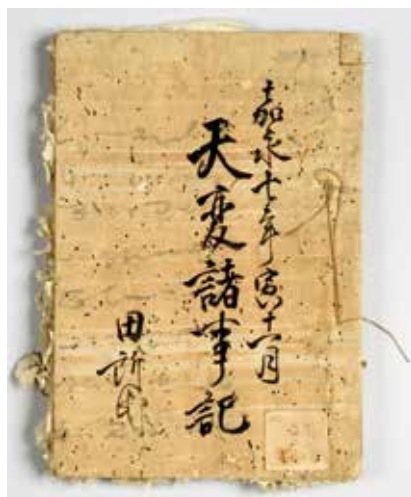 嘉永七年寅十一月
天変諸事記
田所氏